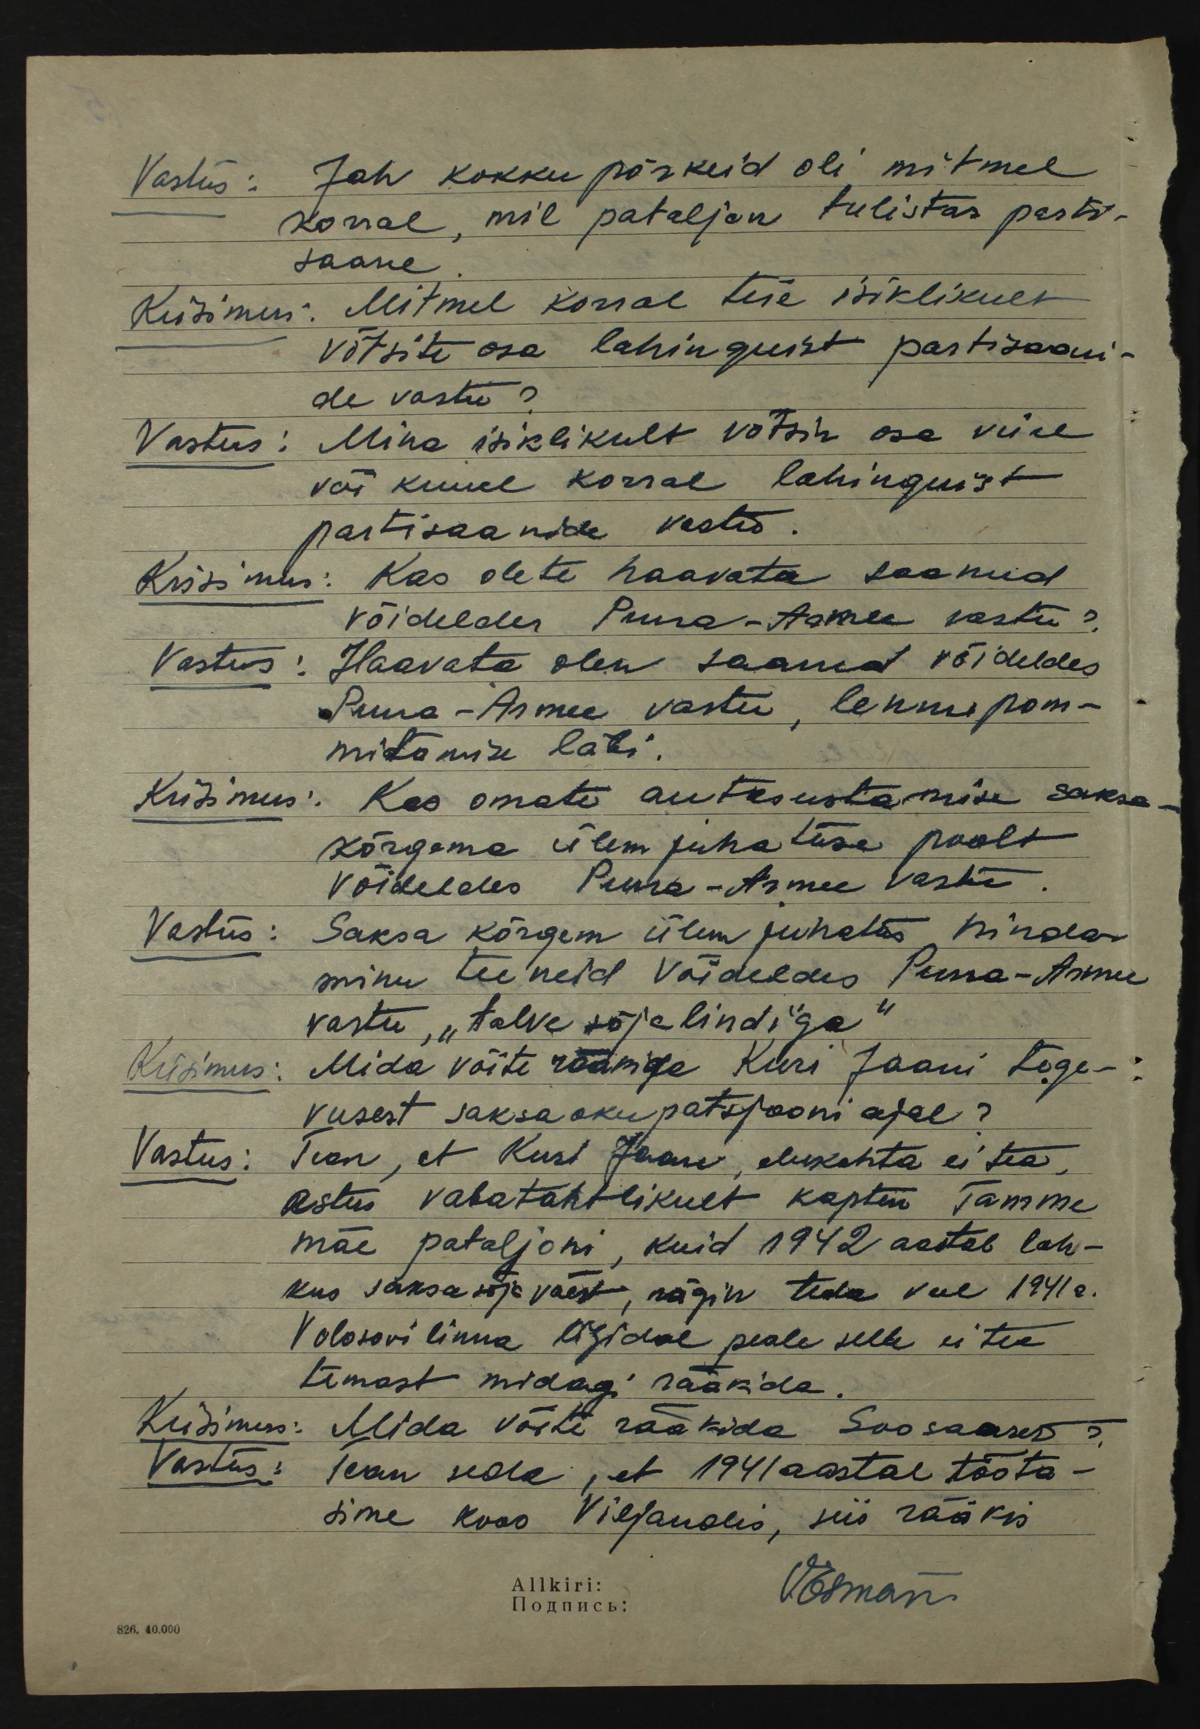 Vastus: Jah kokku põrkeid oli mitmel
korral, mil pataljon tulistas parti-
saane.
Küsimus: Mitmel korral teie isiklikult
võtsite osa lahinguist partisaani-
de vastu?
Vastus: Mina isiklikult võtsin osa viiel
või kuuel korral lahinguist
partisaanide vastu.
Küsimus: Kas olete haavata saanud
võideldes Puna-Armee vastu?
Vastus: Haavata olen saanud võideldes
Puna-Armee vastu, lennupom-
mitamise läbi.
Küsimus: Kas omate autasustamise saksa-
kõrgema ülem juhatuse poolt
võideldes Puna-Armee vastu.
Vastus: Saksa kõrgem ülem juhatus hindas
minu teeneid võideldes Puna-Armee
vastu, „talve sõja lindi"ga"
Küsimus: Mida võite rääkige Kuri Jaani tege-
vusest saksa okupatsjooni ajal?
Vastus: Tean, et Kusi Jaan, elukohta ei tea,
astus vabatahtlikult kapten Tamme
mäe pataljoni, kuid 1942 aastal lah-
kus saksa sõja väest, nägin teda veel 1941 a.
Volosovi linna ligidal peale selle ei tea
temast midagi rääkida.
Küsimus: Mida võite rääkida Soosaarest?
Vastus: Tean seda, et 1941 aastal tööta-
sime koos Viljandis, siis rääkis
Allkiri:
Подпись:
826. 40.000